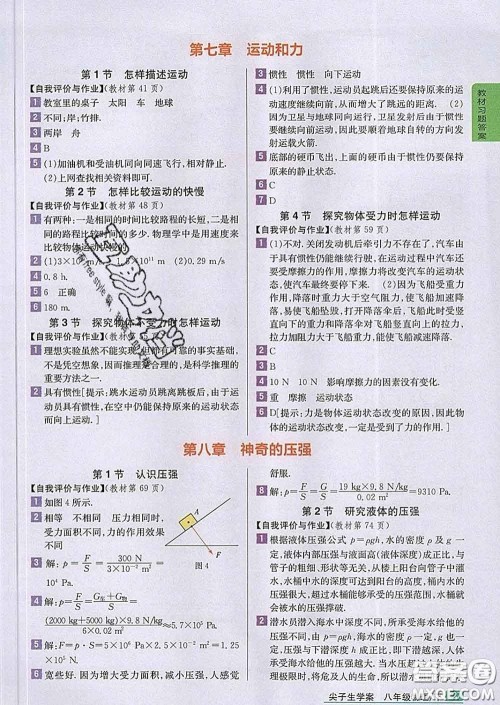 第七章 运动和力
第1节 怎样描述运动
【自我评价与作业】(教材第41页)
1 教室里的桌子 太阳 车 地球
2 不同;岸;竹排.
3 两岸 舟
4 B
5 (1)加油机和受油机同向同速飞行,相对静止.
(2)上网查找相关资料即可.
第2节 怎样比较运动的快慢
【自我评价与作业】(教材第48页)
1 有两种:一是相同的时间比较路程的长短;二是相
同的路程比较时间的多少. 物理学中是用速度来
比较物体运动快慢的.
2 (1)3×10 m (2)0.29 m/s
4 0.8 h.
5 6 正确
6 180 m.
第3节 探究物体不受力时怎样运动
【自我评价与作业】(教材第
1 理想实验虽然不能实现,但却有可靠的事实基础,
不是凭空想象,因而推理是合理的,是科学研究的
重要方法之一.
2 具有惯性[提示:跳水运动员跳离跳板后,由于运
动员具有惯性,在空中仍能保持原来的运动状态
而向上运动.]
3 惯性 惯性 向下运动
4 (1)利用了惯性,运动员起跳后还要保持原来的运
动速度继续向前,从而增大了跳远的距离. (2)因
为卫星与地球同向运行,卫星由于惯性要保持原来
的运动速度继续向前,所以顺着地球自转的方向发
射运载火箭.
5 底部的硬币飞出,上面的硬币由于惯性仍要保持
原来的静止状态.
6 C
7 D
第4节 探究物体受力时怎样运动
【自我评价与作业】(教材第59页)
1 (1)不对. 关闭发动机后牵引力不存在了,但由于汽车
具有惯性仍能继续行驶,在运动的过程中汽车还要
受摩擦力的作用,摩擦力将改变汽车的运动状态,
使汽车最终停止运动. (2)飞船受重力和阻力的作
用,降落时重力大于空气阻力,使飞船加速降落,
容易与飞船摩擦,使飞船的温度升高. (3)飞船受
重力和降落伞对飞船竖直向上的拉力,降落伞打开时
拉力加阻力大于飞船重力,使飞船减速降落.
2 C
3 B
4 10 N 10 N 影响摩擦力的因素没有变化.
5 重 摩擦 运动状态
6 D[提示:力是物体运动状态改变的原因,因此物
体的运动状态改变,一定是受到了力的作用.]
第八章 神奇的压强
第1节 认识压强
【自我评价与作业】(教材第69页)
1 如图4所示.
2 相等 不相同 压力相等,
受力面积不同,力的作用效果
不同
A
F
图4
3 解:p=F/S=300 N/3×10⁻² m²=
4 解:p=F/S=G车+G物/S=
(2000 kg+5000 kg)×9.8 N/kg/6×0.02 m²≈5.7×10⁵ Pa.
5 解:F=p·S=5×10⁶ Pa×0.25 m²=1.25×
10⁶ N.
6 宽些好. 因为增大受力面积,减小压强,人感觉
舒服.
8 解:p=F/S=G/S=19 kg×9.8 N/kg/ =9310 Pa.
第2节 研究液体的压强
【自我评价与作业】(教材第74页)
1 根据液体压强公式 p=ρgh,水的密度 ρ 及 g 一
定,液体内部压强与液面高(液体深度)成正比,与
管子的粗细、形状等无关,从楼上阳台向管子中灌
水,水桶中水的深度可达到阳台的高度,桶内水的
压强足够大,使水桶所受压强的范围,水桶就
2 潜水员潜入海水中深度不同,所承受海水给他的压强也不同,
由 p=ρgh,海水的密度 ρ 一定,g 一定,
压强与深度成正比,潜入越深,海水给他的压强越
大,所以要使用抗压能力不同的潜水服.
教材习题答案
尖子生学案 八年级
答案圈
MXQE.COM